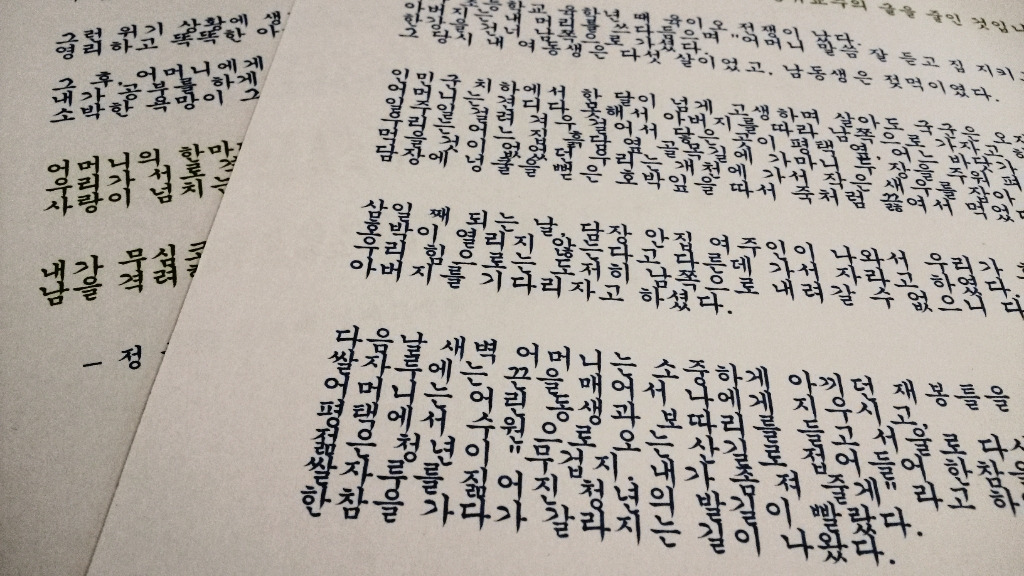 그런 위기 상황에 생
영리하고 똑똑한 아
그 후, 어머니에게
내가 공부를 하게
소박한 욕망이 그
어머니의 한마
우리가 서로
사랑이 넘치는
내가 무심코
남을 격려
- 정
교수의 글을 줄인 것입니
초등학교 육학년 때 육이오 전쟁이 났다.
아버지는 내 머리를 쓰다듬으며 "어머니 말씀 잘 듣고 집 지키고
가셨다.
그 당시 내 여동생은 다섯 살이었고, 남동생은 젖먹이였다.
인민군 치하에서 한 달이 넘게 고생하며 살아도 국군은 오
어머니는 견디다 못해서 아버지를 따라 남쪽으로 가자고
일주일 걸려 걸어서 닿은 곳이 평택 옆 어느
우리는 어느 집 흙담 골목길에 가마니를 주워다가 펴
먹을 것이 없었던 우리는 개천에 가서 새우를 잡아
담장에 넝쿨을 뻗은 호박잎을 따서 죽처럼 끓여서 먹었
삼일 째 되는 날, 담장 안집 여주인이 나와서 우리가
호박이 열리지 않는다고 다른데 가서 자라고 하였다.
우리 힘으로는 도저히 남쪽으로 내려갈 수 없으니 다
아버지를 기다리자고 하셨다.
다음날 새벽 어머니는 소중하게 아끼던 재봉틀을
쌀자루에는 끈을 매어서 나에게 지우시고,
어머니는 어린 동생과 보따리를 들고 서울로 다시
평택에서 수원으로 오는 산길로 접어들어 한참을
젊은 청년이 "무겁지. 내가 좀 져 줄게" 라고 하
쌀자루를 젊어진 청년의 발길이 빨랐다.
한참을 가다가 갈라지는 길이 나왔다.